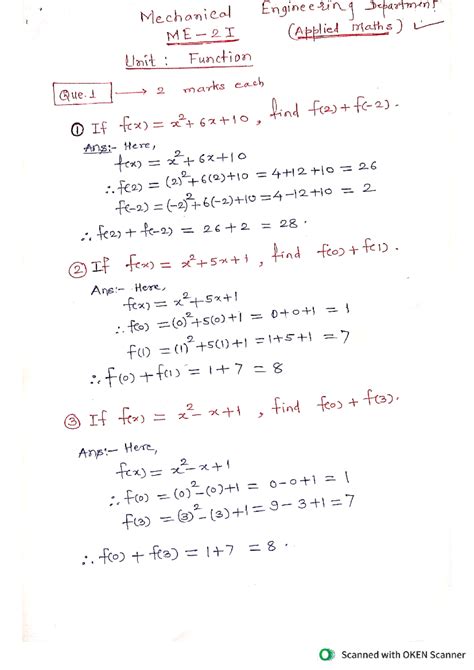 Mechanical Engineering Department
ME-2I (Applied Maths)
Unit : Function
Que.1 → 2 marks each
① If f(x) = x²+6x+10, find f(2)+f(-2).
Ans:- Here,
f(x) = x²+6x+10
∴ f(2) = (2)²+6(2)+10 = 4+12+10 = 26
f(-2) = (-2)²+6(-2)+10 = 4-12+10 = 2
∴ f(2) + f(-2) = 26 + 2 = 28.
② If f(x) = x²+5x+1, find f(0)+f(1).
Ans:- Here,
f(x) = x²+5x+1
∴ f(0) = (0)²+5(0)+1 = 0+0+1 = 1
f(1) = (1)²+5(1)+1 = 1+5+1 = 7
∴ f(0) + f(1) = 1+7 = 8
③ If f(x) = x²-x+1, find f(0) + f(3).
Ans:- Here,
f(x) = x²-x+1
∴ f(0) = (0)²-(0)+1 = 0-0+1 = 1
f(3) = (3)²-(3)+1 = 9-3+1 = 7
∴ f(0) + f(3) = 1+7 = 8.
Scanned with OKEN Scanner